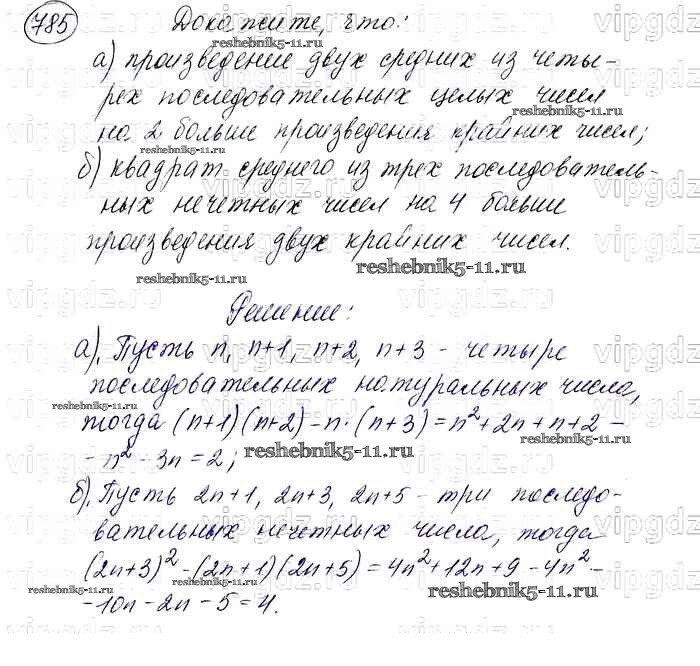 785 Докажите, что:
а) произведение двух средних из четы-
рех последовательных целых чисел
на 2 больше произведения крайних чисел;
б) квадрат среднего из трех последователь-
ных нечетных чисел на 4 больше
произведения двух крайних чисел.
Решение:
а). Пусть n, n+1, n+2, n+3 - четыре
последовательных натуральных числа,
тогда (n+1)(n+2)-n·(n+3)=n²+2n+n+2-
-n²-3n=2;
б). Пусть 2n+1, 2n+3, 2n+5 - три последо-
вательных нечетных числа, тогда
(2n+3)²-(2n+1)(2n+5)=4n²+12n+9-4n²-
-10n-2n-5=4.
reshebnik5-11.ru
vipgdz.ru